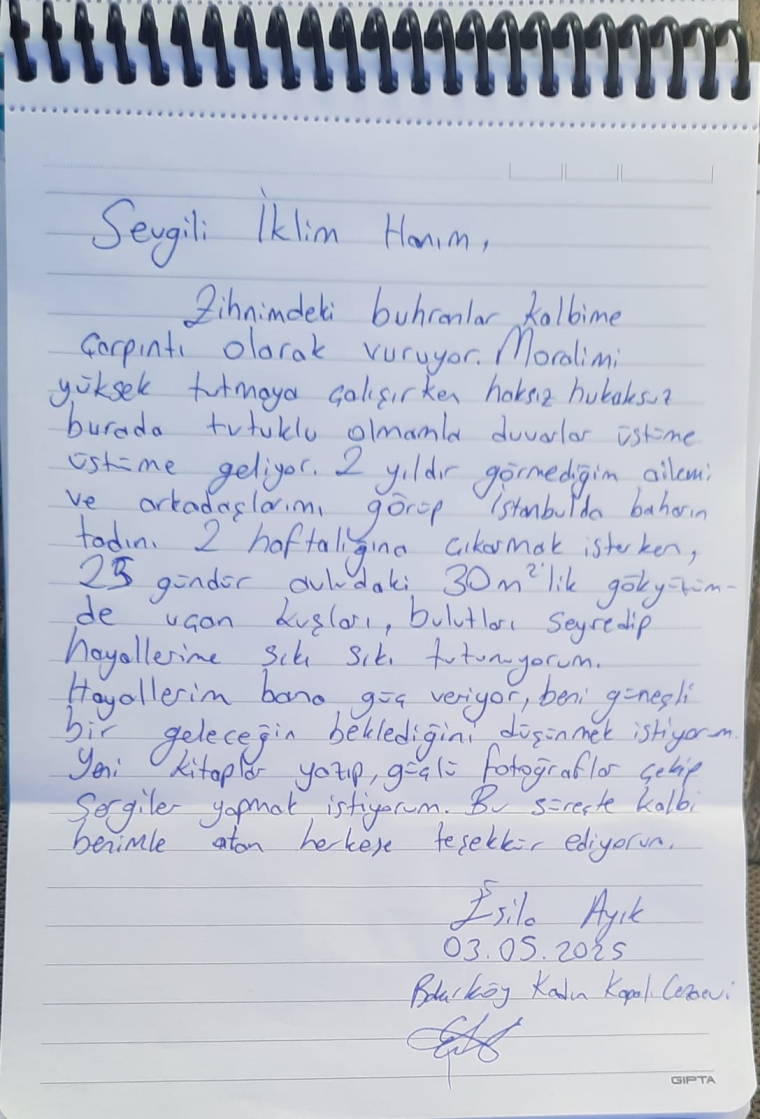 Sevgili İklim Hanım,
Zihnimdeki buhranlar kalbime
çarpıntı olarak vuruyor. Moralimi
yüksek tutmaya çalışırken haksız hukuksuz
burada tutuklu olmamla duvarlar üstüme
üstüme geliyor. 2 yıldır görmediğim ailemi
ve arkadaşlarımı görüp İstanbulda baharın
tadını 2 haftalığına çıkarmak isterken,
25 gündür avludaki 30m²'lik gökyüzün-
de uçan kuşları, bulutları seyredip
hayallerime sıkı sıkı tutunuyorum.
Hayallerim bana güç veriyor, beni güneşli
bir geleceğin beklediğini düşünmek istiyorum.
Yeni kitaplar yazıp, güçlü fotoğraflar çekip
Sergiler yapmak istiyorum. Bu süreçte kalbi
benimle atan herkese teşekkür ediyorum.
Esila Ayık
03.05.2025
Bakırköy Kadın Kapalı Cezaevi
GIPTA